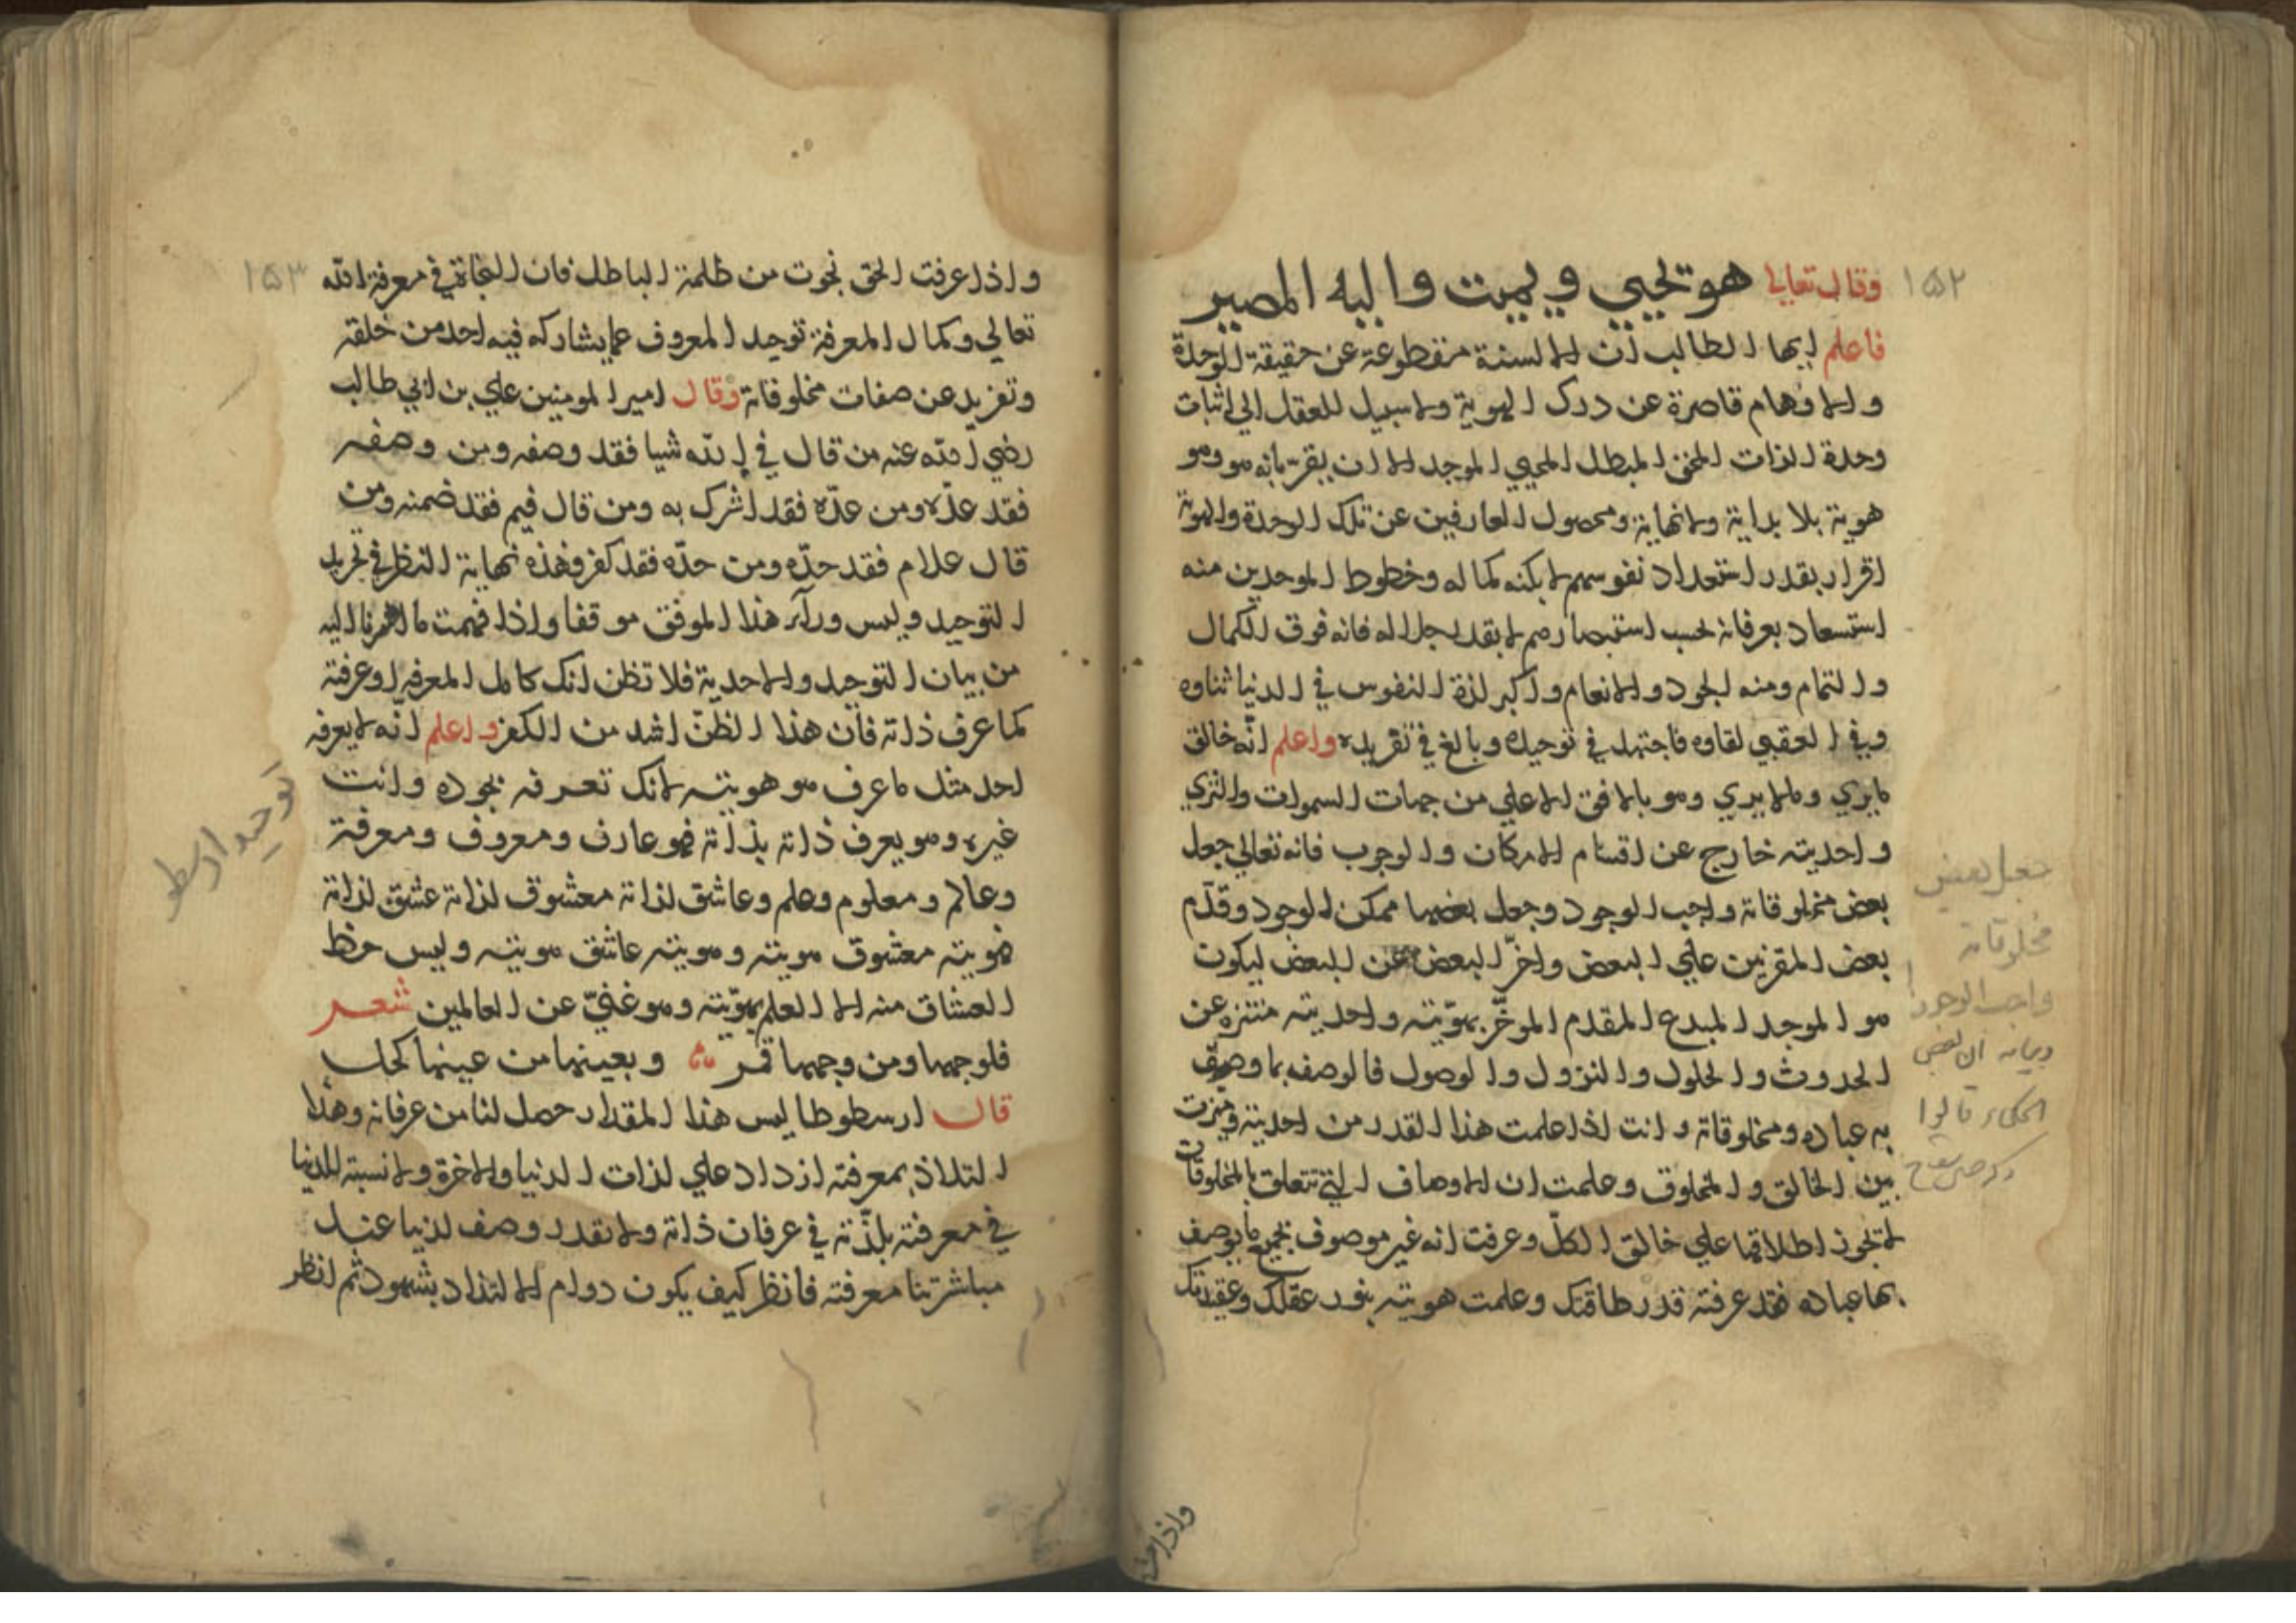 ١٥٢
وقال تعالى هو يحيي ويميت واليه المصير
فاعلم ايها الطالب ان الالسنة منقطوعة عن حقيقة الوحدة
والاوهام قاصرة عن درك الهوية ولا سبيل للعقل الي اثبات
وحدة الذات المحق المبطل المحيي الموجد الا ان يقر بانه هو وهو
هوية بلا بداية ولا نهاية ومحصول العارفين عن تلك الوحدة والهوية
اقرار بقدر استعداد نفوسهم لا بكنه كماله وخطوط الموحدين منه
استسعاد بعرفانه بحسب استبصارهم لا بقدر جلاله فانه فوق الكمال
والتمام ومنه الجود والانعام واكبر لذة النفوس في الدنيا ثناوه
وفي العقبي لقاوه فاجتهد في توحيده وبالغ في تفريده واعلم انّه خالق
ما يري وما لا يري وهو بالافق الاعلي من جهات السموات والثري
واحديته خارج عن اقسام الامكان والوجوب فانه تعالي جعل
بعض مخلوقاته واجب الوجود وجعل بعضها ممكن الوجود وقدّم
بعض المقربين علي البعض واخرّ البعض عن البعض ليكون
هو الموجد المبدع المقدم الموخّر بهوّيته واحديته متنزه عن
الحدوث والحلول والنزول والوصول فالوصف بما وصف
به عباده ومخلوقاته وانت اذا علمت هذا القدر من احديته وميزت
بين الخالق والمخلوق وعلمت ان الاوصاف التي تتعلق بالمخلوقات
لا تجوز اطلاقها علي خالق الكلّ وعرفت انه غير موصوف بجميع ما يوصف
بها عباده فقد عرفته قدر طاقتك وعلمت هويته بنور عقلك وعقيدتك
جعل بعض
مخلوقاته
واجب الوجود
وبيانه ان بعض
الحكماء قالوا
١٥٣
واذا عرفت الحق نجوت من ظلمة الباطل فان النجاة في معرفة الله
تعالي وكمال المعرفة توحيد المعروف عما يشاركه فيه احد من خلقه
وتفريد عن صفات مخلوقاته وقال امير المومنين علي بن ابي طالب
رضي الله عنه من قال في الله شيا فقد وصفه ومن وصفه
فقد عدّه ومن عدّه فقد اشرك به ومن قال فيم فقد ضمنه ومن
قال علام فقد حدّه ومن حدّه فقد كفر وهذه نهاية النظر في تجريد
التوحيد وليس ورآء هذا الموفق موقفا واذا فهمت ما اشرنا اليه
من بيان التوحيد والاحدية فلا تظن انك كامل المعرفه او عرفته
كما عرف ذاته فان هذا الظنّ اشد من الكفر واعلم انّه لا يعرفه
احد مثل ما عرف هو هويته لانك تعرفه بجوده وانت
غيره وهو يعرف ذاته بذاته فهو عارف ومعروف ومعرفة
وعالم ومعلوم وعلم وعاشق لذاته معشوق لذاته عشق لذاته
فهويته معشوق هويته وهويته عاشق هويته وليس حظ
العشاق منه الا العلم بهوّيته وهو غنيّ عن العالمين شعر
فلوجهها ومن وجهها قمر وبعينها من عينها كحل
قال ارسطوطاليس هذا المقدار حصل لنا من عرفانه وهذا
التلاذ بمعرفته ازداد علي لذات الدنيا والاخرة ولا نسبة للدنيا
في معرفته بلذّته في عرفان ذاته ولا نقدر وصف لذتنا عند
مباشرتنا معرفته فانظر كيف يكون دوام الالتذاد بشهود ثم انظر
توحيد ارسطو